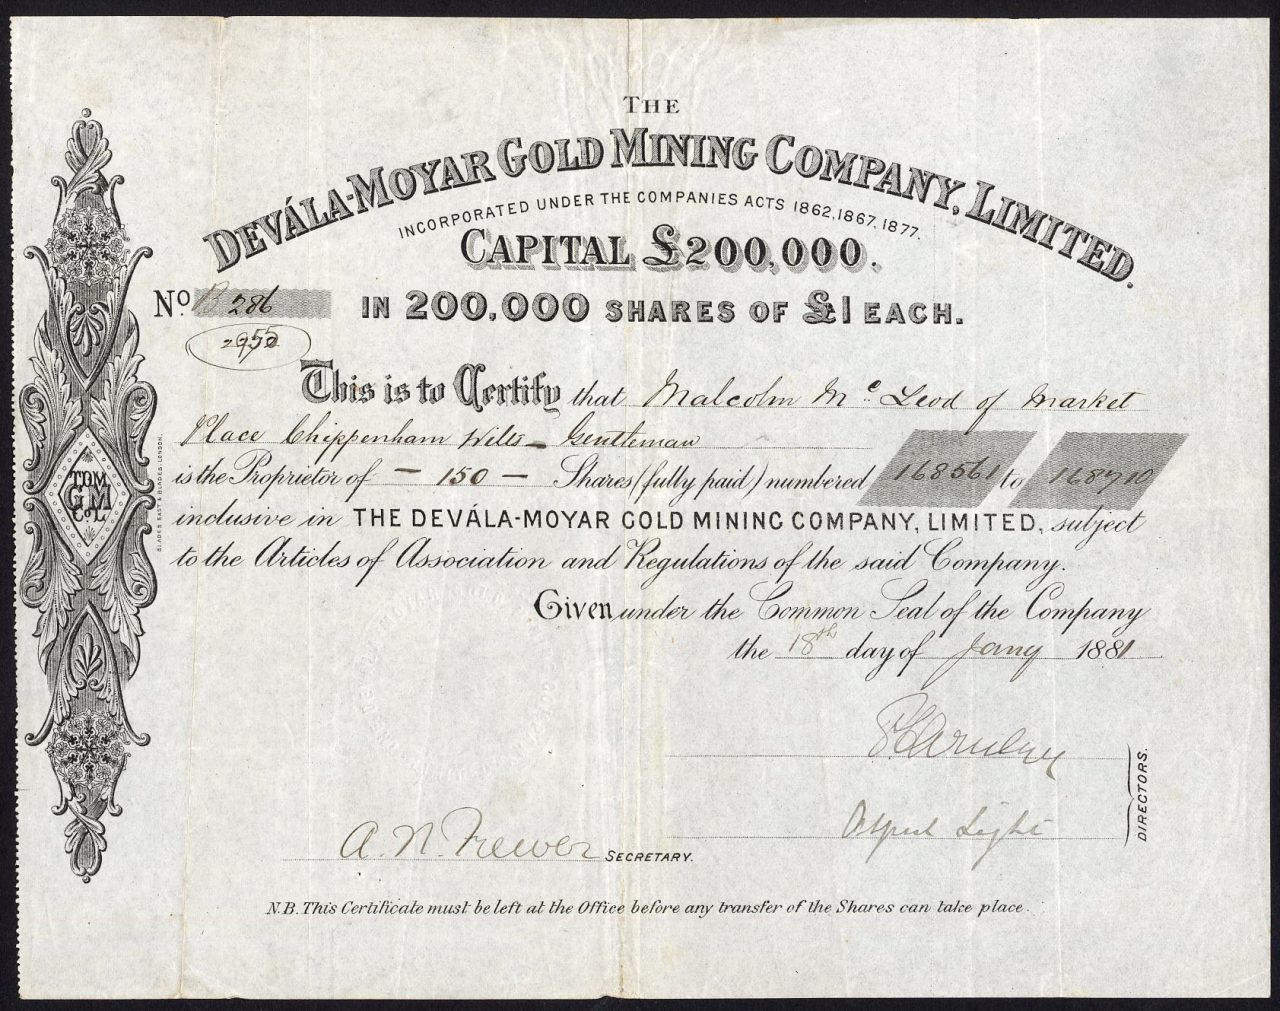 THE
DEVÁLA-MOYAR GOLD MINING COMPANY, LIMITED.
INCORPORATED UNDER THE COMPANIES ACTS 1862, 1867, 1877.
CAPITAL £200,000.
No. B 286
IN 200,000 SHARES OF £1 EACH.
This is to Certify that Malcolm Mc. Leod of Market
Place Chippenham Wilts - Gentleman
is the Proprietor of - 150 - Shares (fully paid) numbered 168561 to 168710
inclusive in THE DEVÁLA-MOYAR GOLD MINING COMPANY, LIMITED, subject
to the Articles of Association and Regulations of the said Company.
Given under the Common Seal of the Company
the 18th day of Jany 1881
TDM
G.M
Co L
BLADES EAST & BLADES, LONDON.
Alfred Light
DIRECTORS.
A. N. Frewer SECRETARY.
N.B. This Certificate must be left at the Office before any transfer of the Shares can take place.